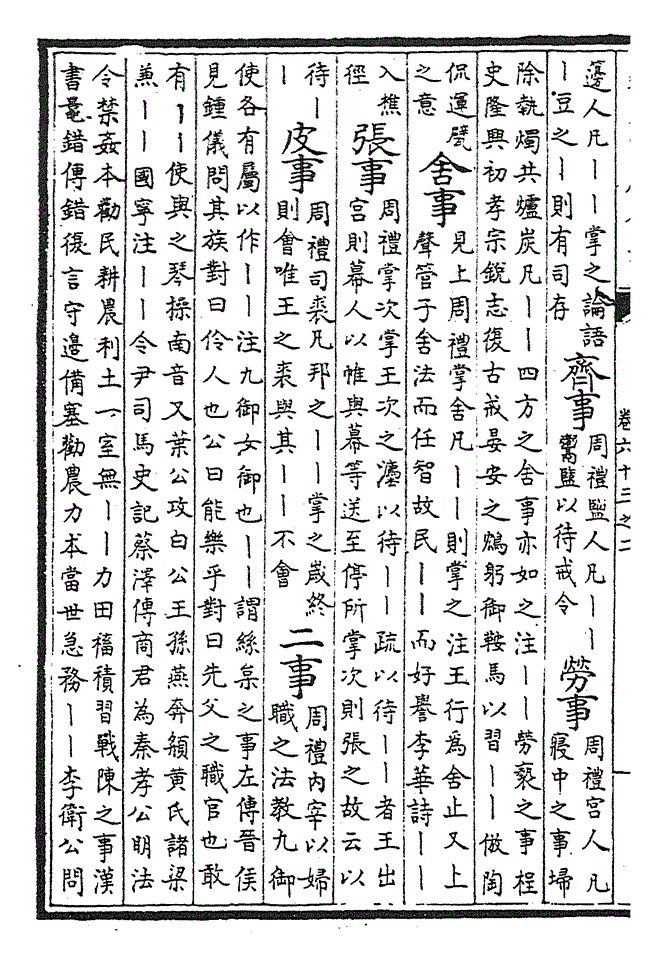 籩人凡｜｜掌之論語
｜豆之｜則有司存
齊事
周禮鹽人凡｜｜
鬻鹽以待戒令
勞事
周禮宮人凡
寢中之事埽
除執燭共爐炭凡｜｜四方之舍事亦如之注｜｜勞褻之事桯
史隆興初孝宗銳志復古戒晏安之鴆躬御鞍馬以習｜｜倣陶
侃運甓
之意
舍事
見上周禮掌舍凡｜｜則掌之注王行為舍止又上
聲管子舍法而任智故民｜｜而好譽李華詩｜｜
入樵
徑
張事
周禮掌次掌王次之灋以待｜｜疏以待｜｜者王出
宮則幕人以帷與幕等送至停所掌次則張之故云以
待｜
｜
皮事
周禮司裘凡邦之｜｜掌之歲終
則會唯王之裘與其｜｜不會
二事
周禮內宰以婦
職之法教九御
使各有屬以作｜｜注九御女御也｜｜謂絲枲之事左傳晉侯
見鍾儀問其族對曰伶人也公曰能樂乎對曰先父之職官也敢
有｜｜使與之琴操南音又葉公攻白公王孫燕奔頯黃氏諸梁
兼｜｜國寧注｜｜令尹司馬史記蔡澤傳商君為秦孝公明法
令禁姦本勸民耕農利土一室無｜｜力田稸積習戰陳之事漢
書鼂錯傳錯復言守邊備塞勸農力本當世急務｜｜李衛公問
卷六十三之二